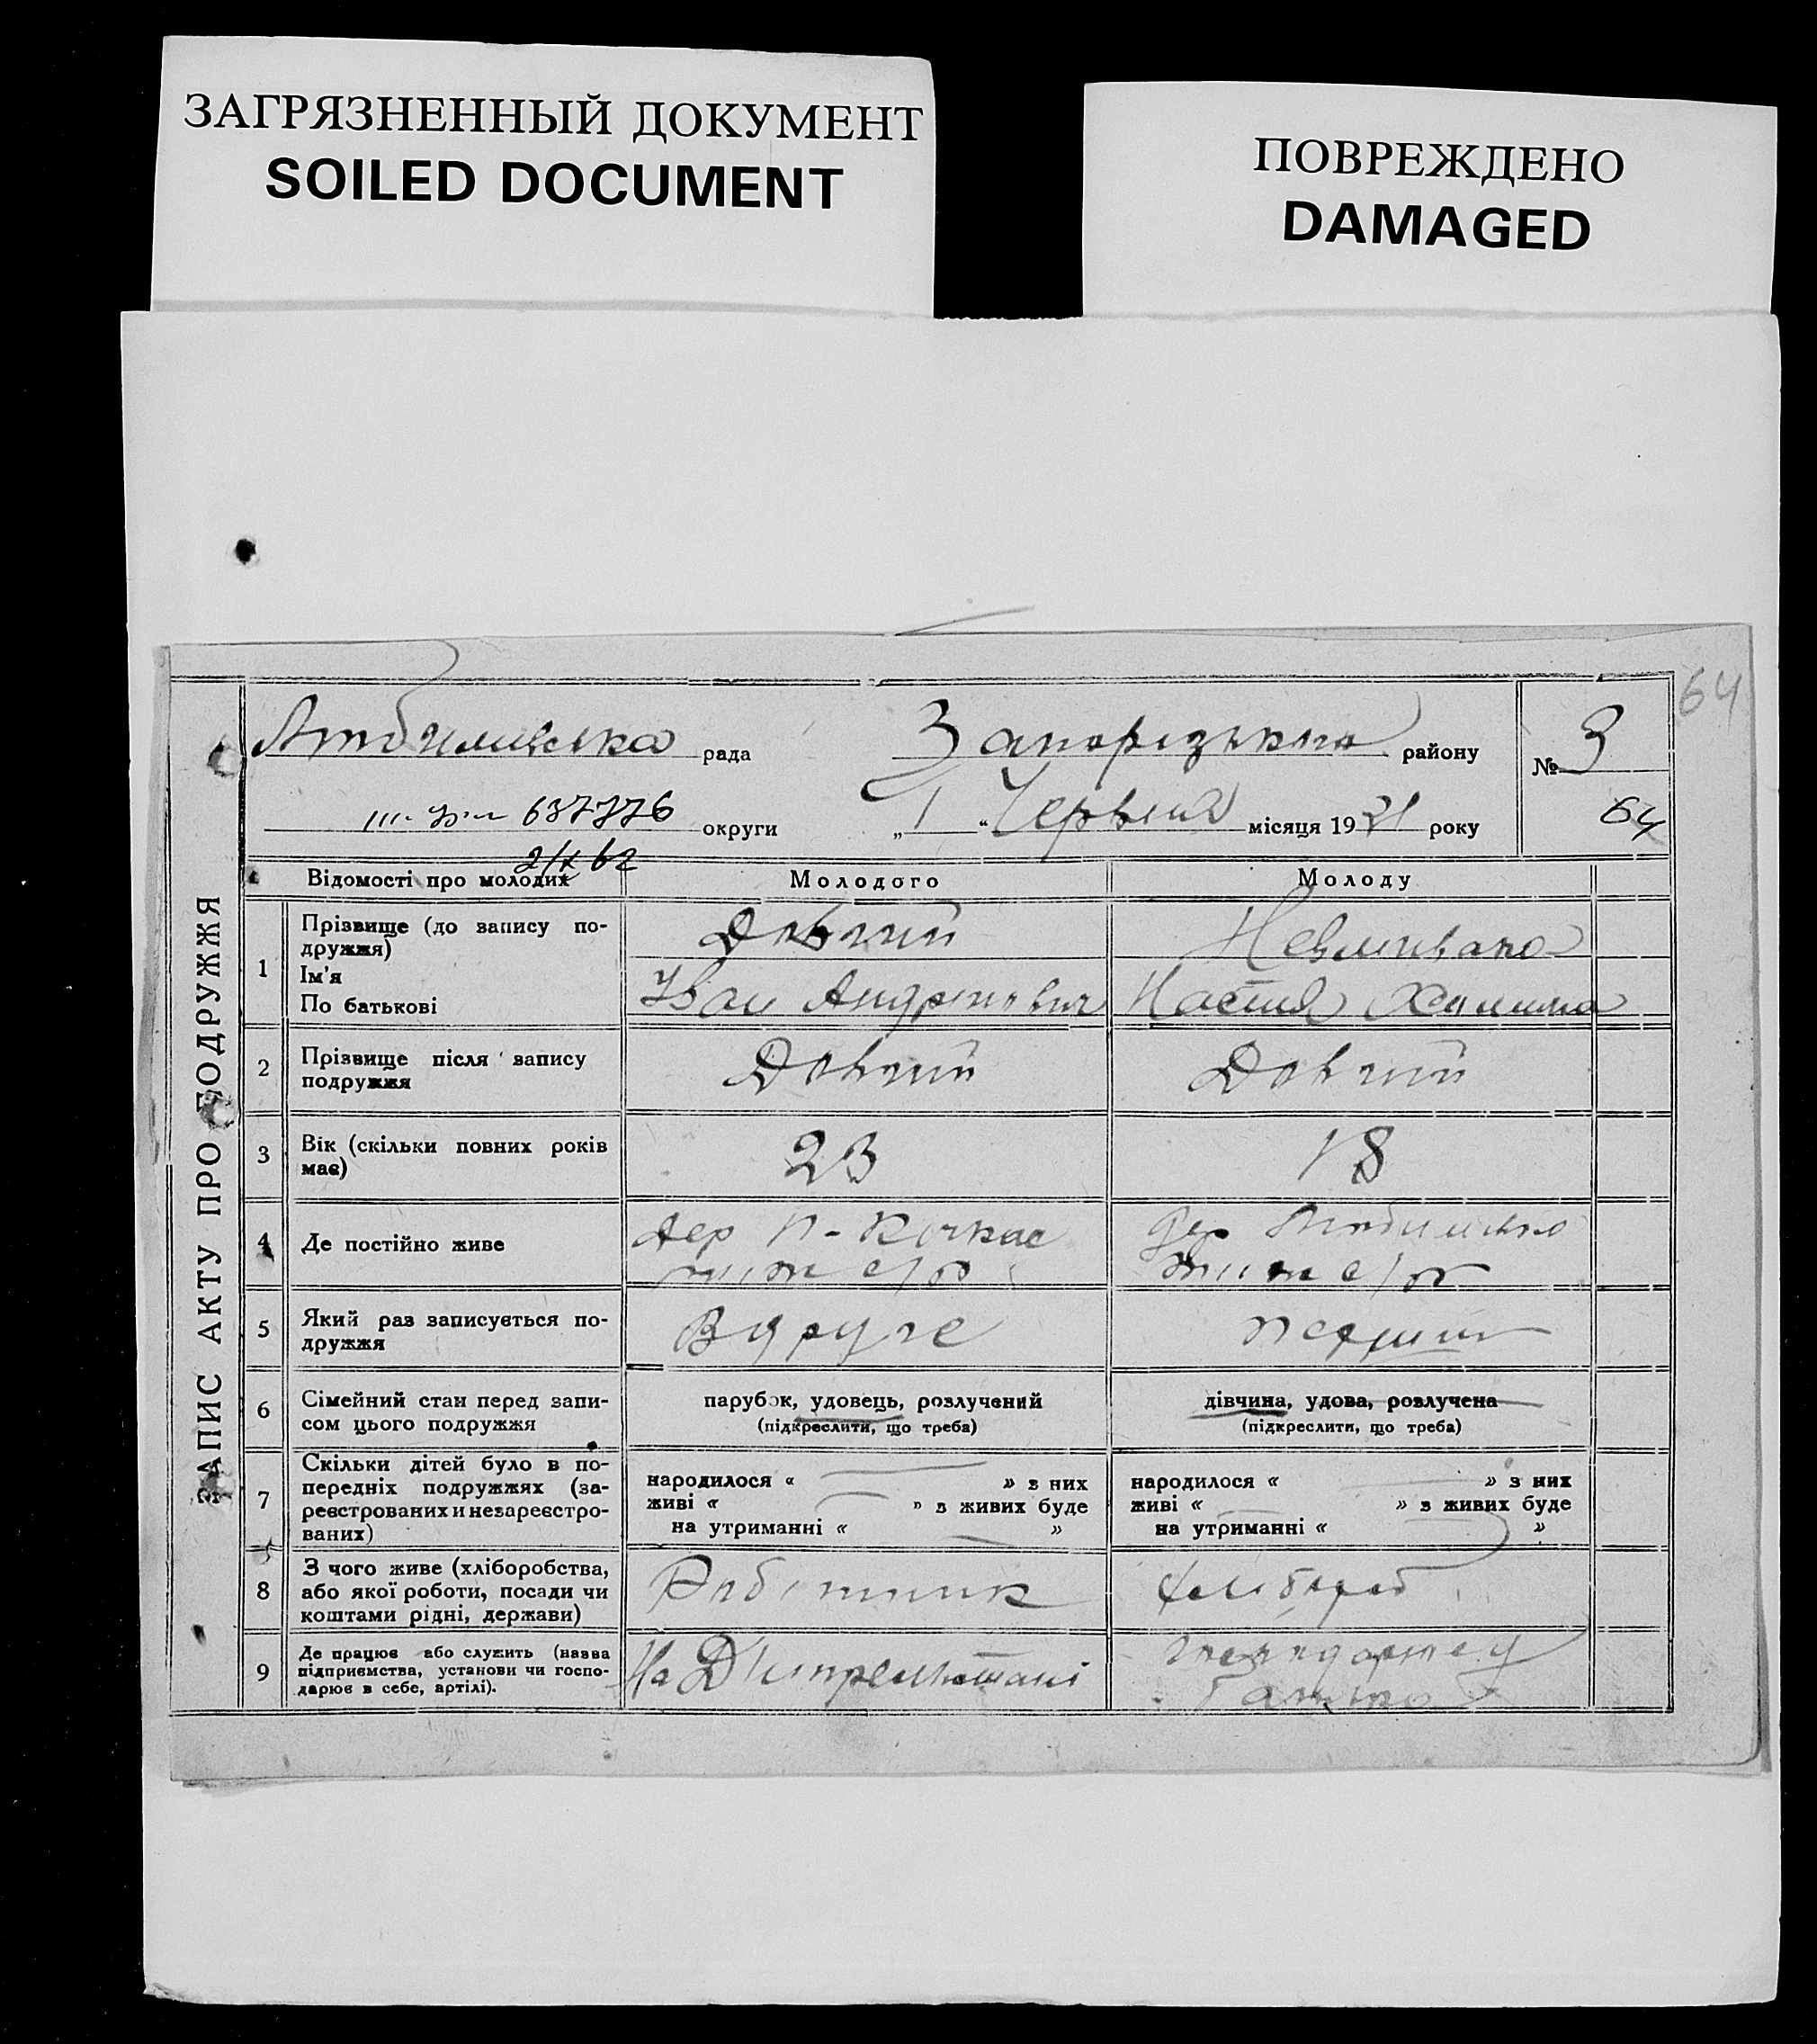 ЗАГРЯЗНЕННЫЙ ДОКУМЕНТ
SOILED DOCUMENT
ПОВРЕЖДЕНО
DAMAGED
64
рада Запорізького району № 3
637776 округи „1“ Червня місяця 1931 року 64
2/IX 62
ЗАПИС АКТУ ПРО ПОДРУЖЖЯ
Відомості про молодих Молодого Молоду
1 Прізвище (до запису по-
дружжя)
Ім'я
По батькові
Довгий
Іван Андрієвич
Настя
2 Прізвище після запису
подружжя
Довгий Довгий
3 Вік (скільки повних років
має)
23 18
4 Де постійно живе
дер Кічкас
дер
5 Який раз записується по-
дружжя
Вдруге перший
6 Сімейний стан перед запи-
сом цього подружжя
парубок, удовець, розлучений
(підкреслити, що треба)
дівчина, удова, розлучена
(підкреслити, що треба)
7 Скільки дітей було в по-
передніх подружжях (за-
реєстрованих и незареєстро-
ваних)
народилося « » з них
живі « » з живих буде
на утриманні « »
народилося « » з них
живі « » з живих буде
на утриманні « »
8 З чого живе (хліборобства,
або якої роботи, посади чи
коштами рідні, держави)
Робітник хлібороб
9 Де працює або служить (назва
підприємства, установи чи госпо-
дарює в себе, артілі).
На